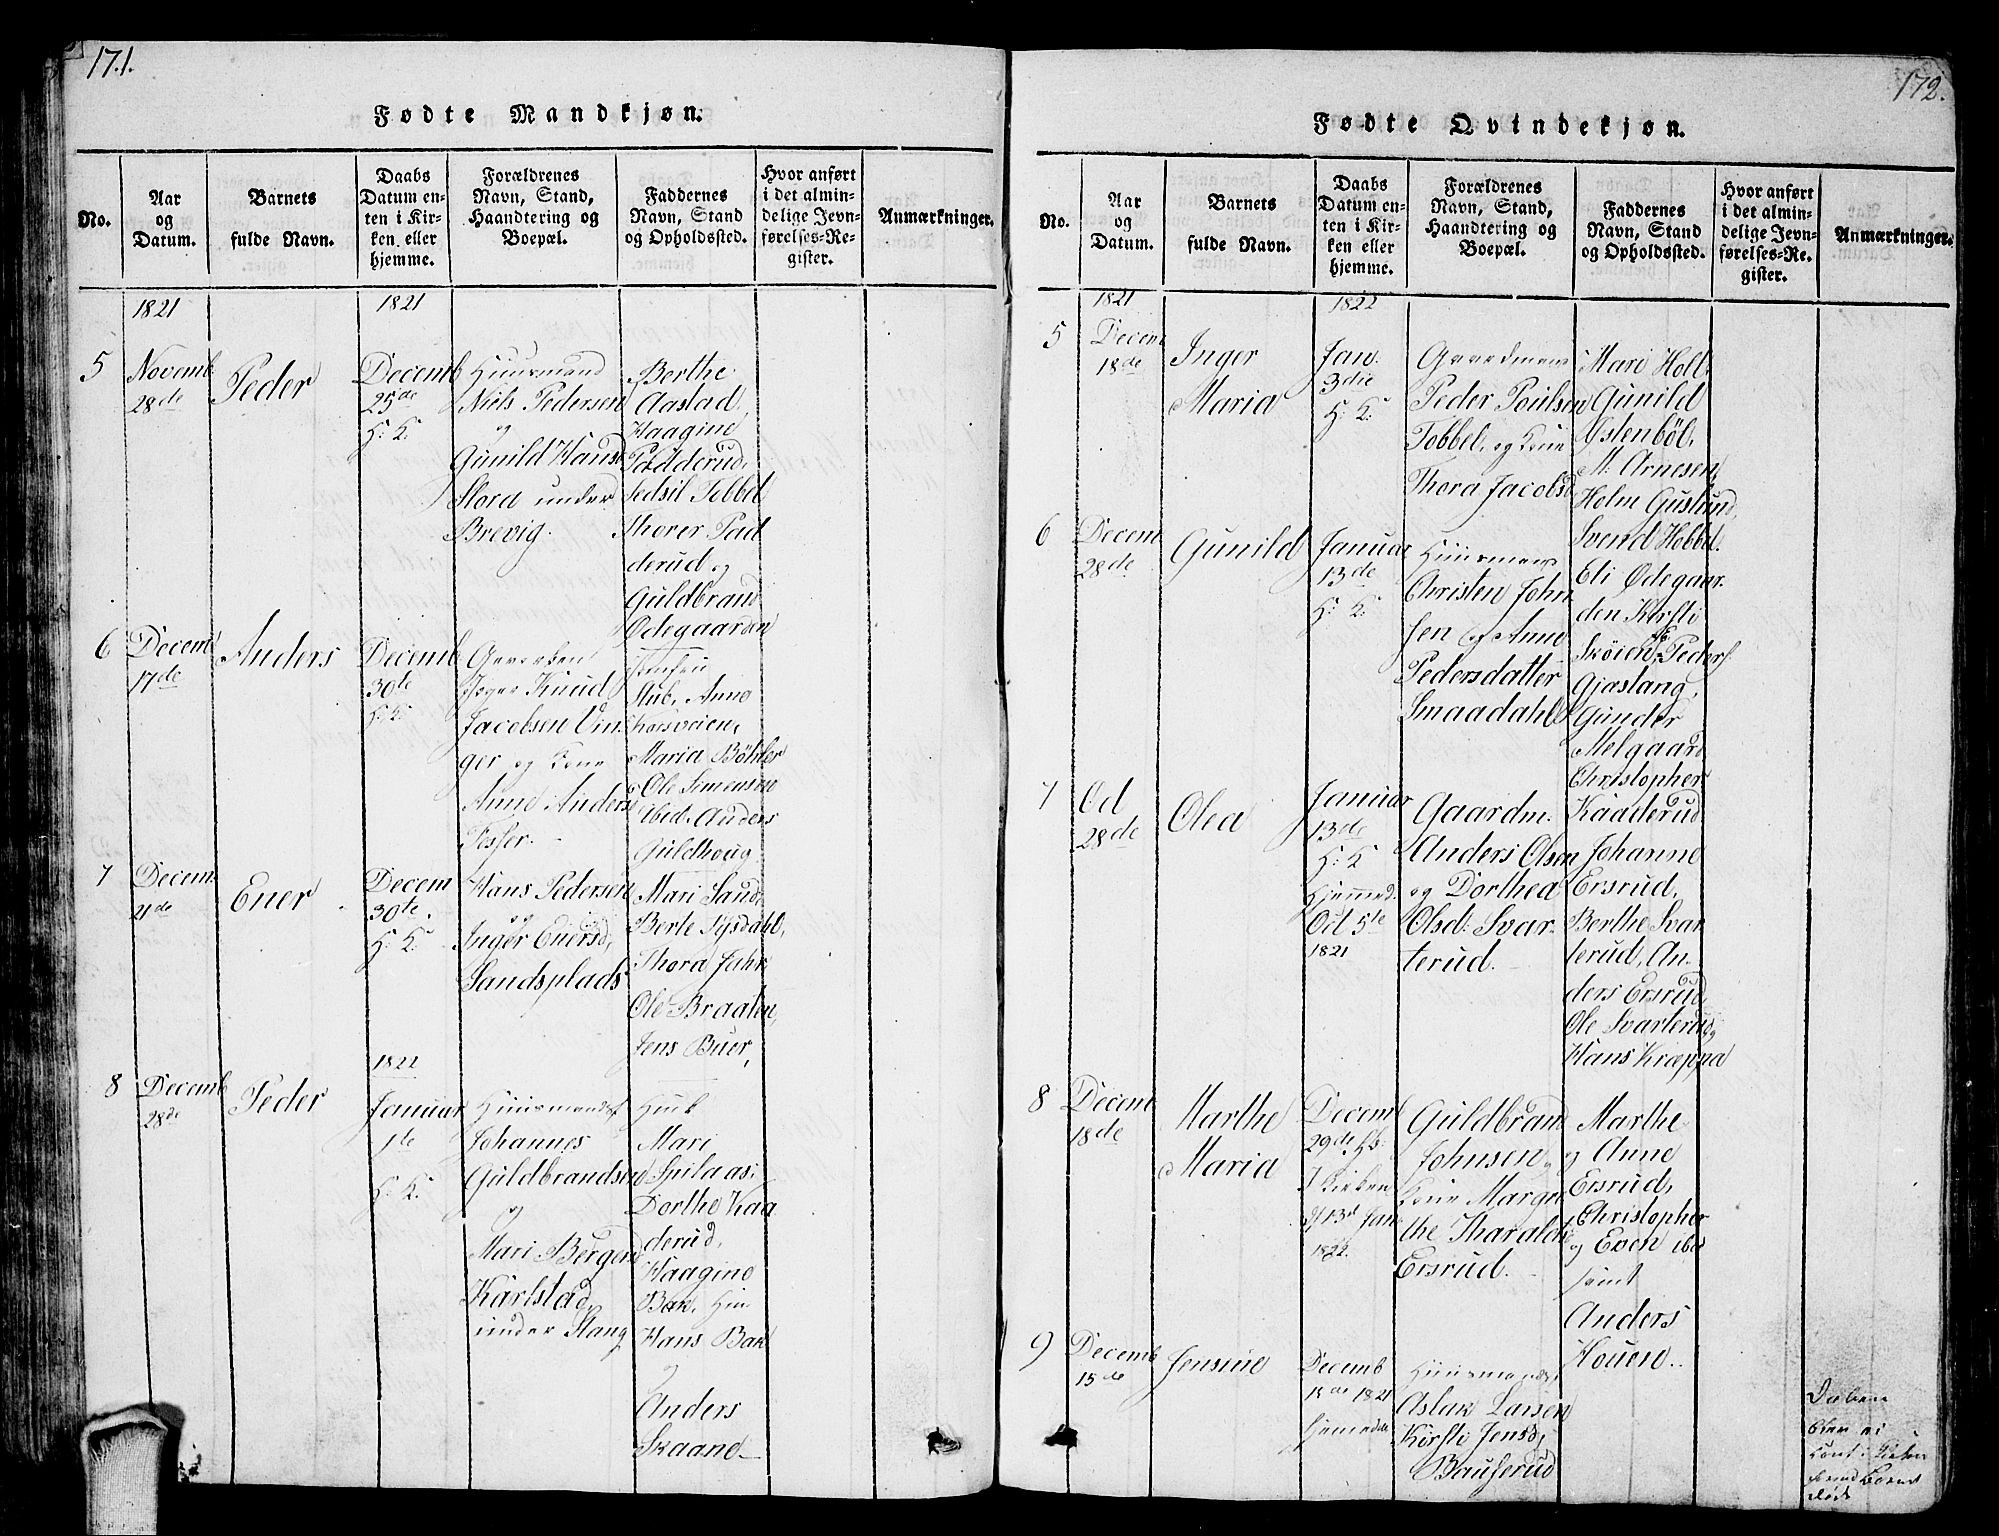 171.
Fødte Mandkjøn.
No.
Aar
og
Datum.
Barnets
fulde Navn.
Daabs
Datum en-
ten i Kir-
ken eller
hjemme.
Forældrenes
Navn, Stand,
Haandtering og
Boepæl.
Faddernes
Navn, Stand
og Opholdssted.
Hvor anført
i det almin-
delige Jevn-
førelses-Re-
gister.
Anmærkninger.
1821
5
Novemb
28de
Peder
1821
Decemb
25de
H: K:
Huusmand
Niels Pedersen
og
Gunild Hansd
Stora under
Brevig.
Berthe
Aastad,
Haagine
Padderud,
Sedsil Tobbel
Thorer Pad
derud og
Guldbrand
Ødegaarden
6
Decem
17de
Anders
Decemb
30te
H: K:
Knud
Jacobsen Vin
ger og Kone
Anne Anders
Fosser.
Stub, Anne
Korsveien,
Maria Böhler
Ole Simensen
ibed. Anders
Guldhoug
7
Decem
21de
Ener
Decem
30te
H: K:
Hans Pedersen
og
Inger Enersd,
Sandsplads
Mari Sand,
Berte Sysdahl,
Thora Jahr
Ole Braaten,
Jens Buer,
8
Decemb
28de
Peder
1822
Januar
1te
H: K:
Huusmand
Johannes
Guldbrandsen
og
Mari Bergersd
Karlstad,
under Slang
Mari
Spilaas:
Dorthe Kaa
derud,
Haagine
Bak,
Hans Bak
og
Anders
Skaane
172.
Fødte Qvindekjøn.
No.
Aar
og
Datum.
Barnets
fulde Navn.
Daabs
Datum en-
ten i Kir-
ken eller
hjemme.
Forældrenes
Navn, Stand,
Haandtering og
Boepæl.
Faddernes
Navn, Stand
og Opholdssted.
Hvor anført
i det almin-
delige Jevn-
førelses-Re-
gister.
Anmærkninger.
1821
5
Decem
18de
Inger
Maria
1822
Jan.
3die
H: K:
Gaardmand
Peder Poulsen
Tobbel, og Kone
Thora Jacobsd
Mari Holt,
Gunild
Ystenböl,
M: Arnesen,
Holm Guslund
Svend Hobbel.
6
Decem
28de
Gunild
Januar
13de
H: K:
Huusmand
Christen John
sen og Anne
Pedersdatter
Smaadahl
Eli Ødegaar
den Kirsti
Skøien, Peder
Gjaslang,
Gunder
Melgaard
7
Od
28de
Olea
Januar
13de
H: K:
Hjemmed.
Oct 5te
1821
Gaardm.
Anders Olsen
og Dorthea
Olsd: Svar
terud.
Christopher
Kaatterud
Johanne
Ersrud,
Berthe Svar
terud, An
ders Ersrud
Ole Svarterud og
Hans Kræppa
8
Decem
18de
Marthe
Maria
Decem
29de
I Kirken
d 13d Jan
1822.
Guldbrand
Johnsen og
Kone Margre
the Tharaldsd
Ersrud.
Marthe
og Anne
Ersrud,
Christopher
og Even ibd
samt
Anders
Houen.
9
Decemb
15de
Jensine
Decemb
18de 1821
Hjemmedöbt
Huusmand
Aslak Larsen
Kirsti Jensd,
Bauserud